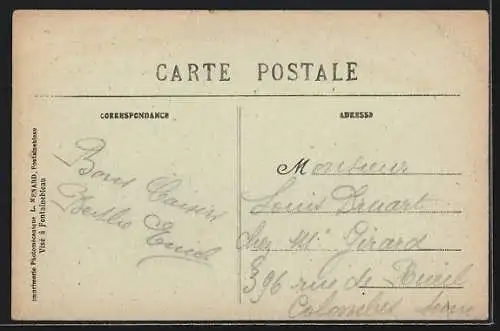 CARTE POSTALE
CORRESPONDANCE
ADRESSE
Imprimerie Photomécanique L. MENARD, Fontainebleau
Visé à Fontainebleau
Bons Baisers
Berthe Emile
Monsieur
Louis Druart
chez Mr Girard
396 rue de
Colombes Seine